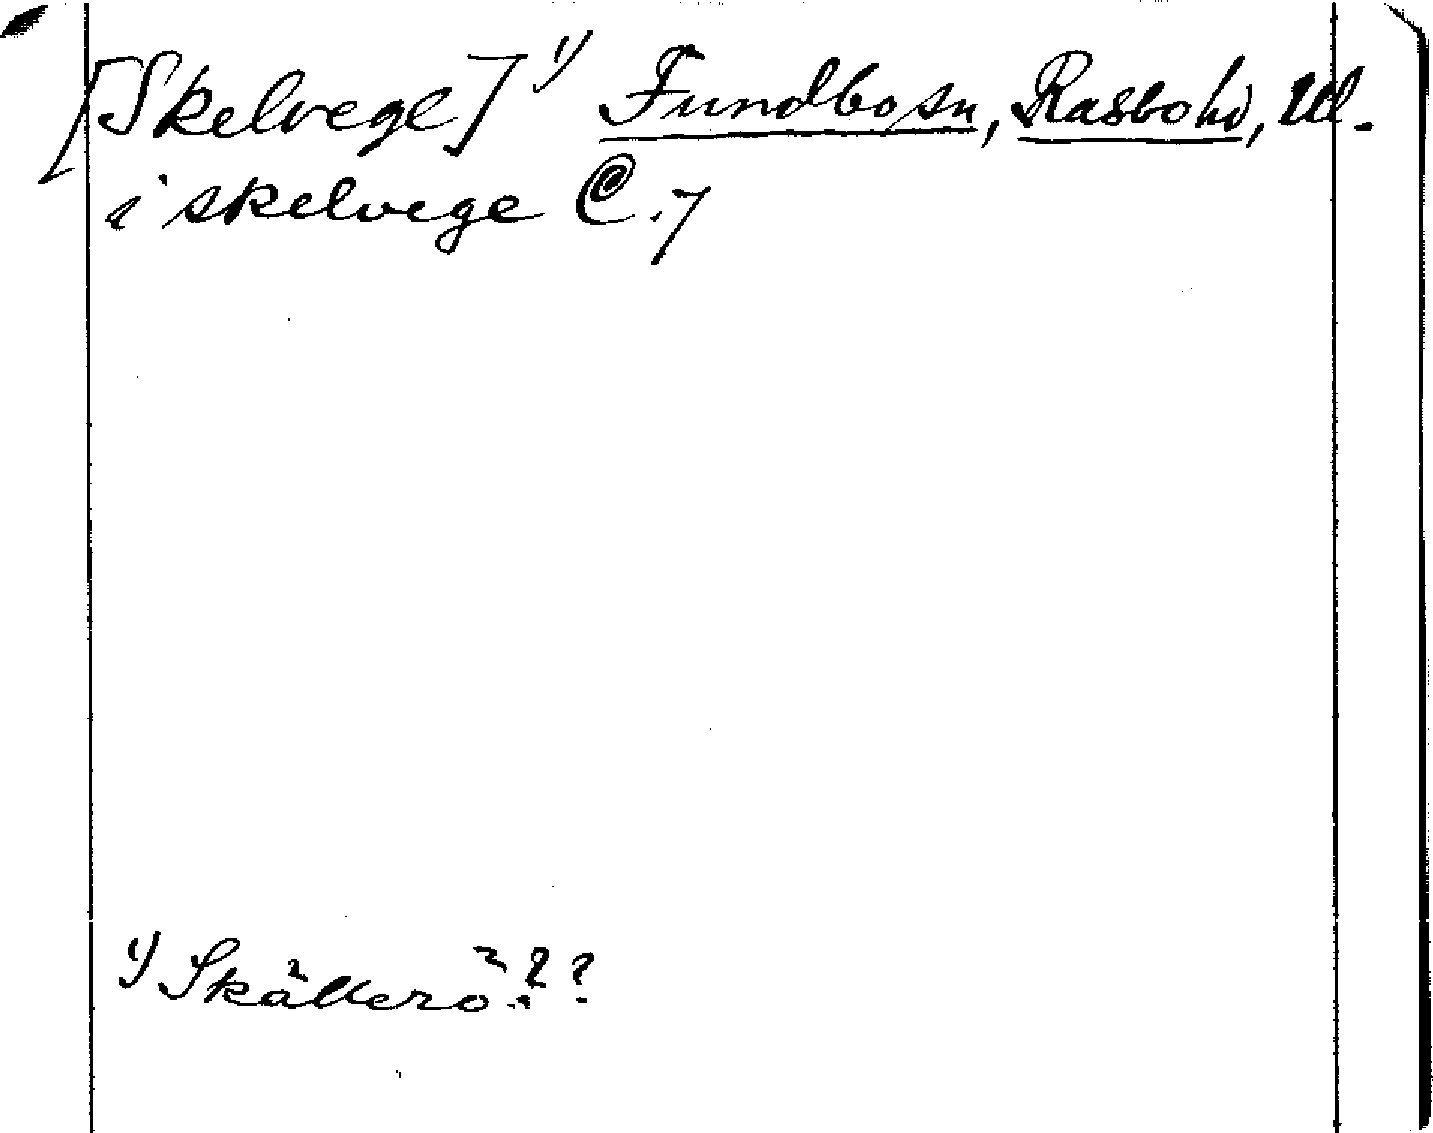 [Skelvege] 1) Fundbo sn, Rasbo hd, Ul.
i skelvege C. 7
1) Skällerö??